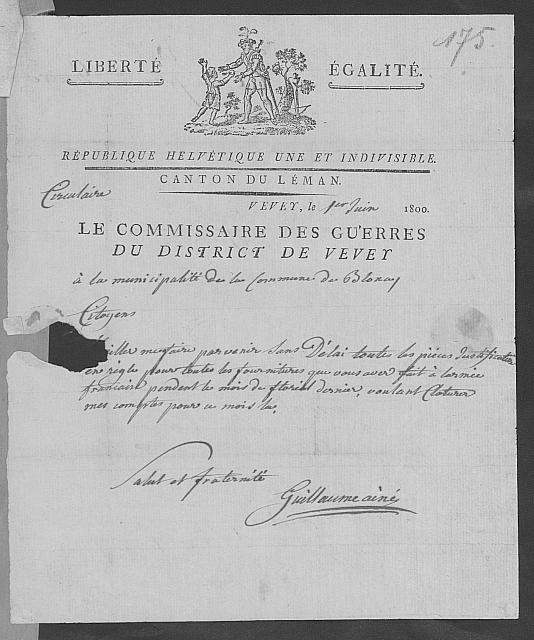 175.
LIBERTÉ ÉGALITÉ.
RÉPUBLIQUE HELVÉTIQUE UNE ET INDIVISIBLE.
CANTON DU LÉMAN.
Circulaire
VEVEY, le 1er Juin 1800.
LE COMMISSAIRE DES GUERRES
DU DISTRICT DE VEVEY
à la municipalité de la Commune de Blonay
Citoyens
me faire parvenir sans Délai toute les pièces Justificative
en règle pour toutes les fournitures que vous avez fait à larmée
francaise pendent le mois de floréal dernier, voulant Cloturer
mes comptes pour ce mois là,
Salut et fraternité
Guillaume ainé